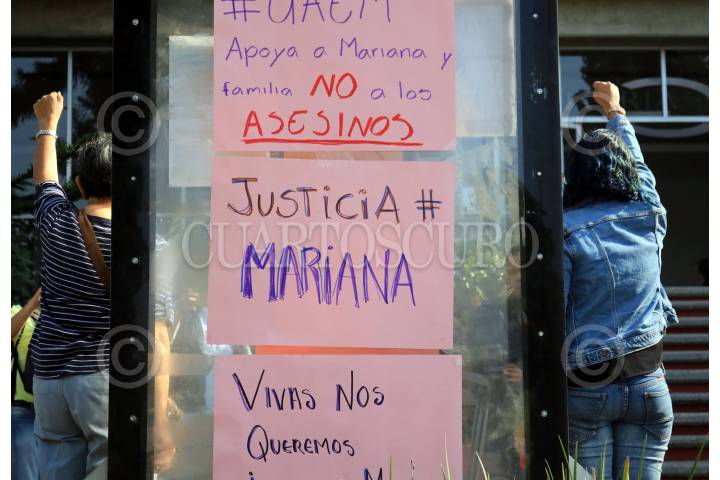 #UAEM
Apoya a Mariana y
familia NO a los
ASESINOS
JUSTICIA #
MARIANA
CUARTOSCURO
VIVAS NOS
QUEREMOS